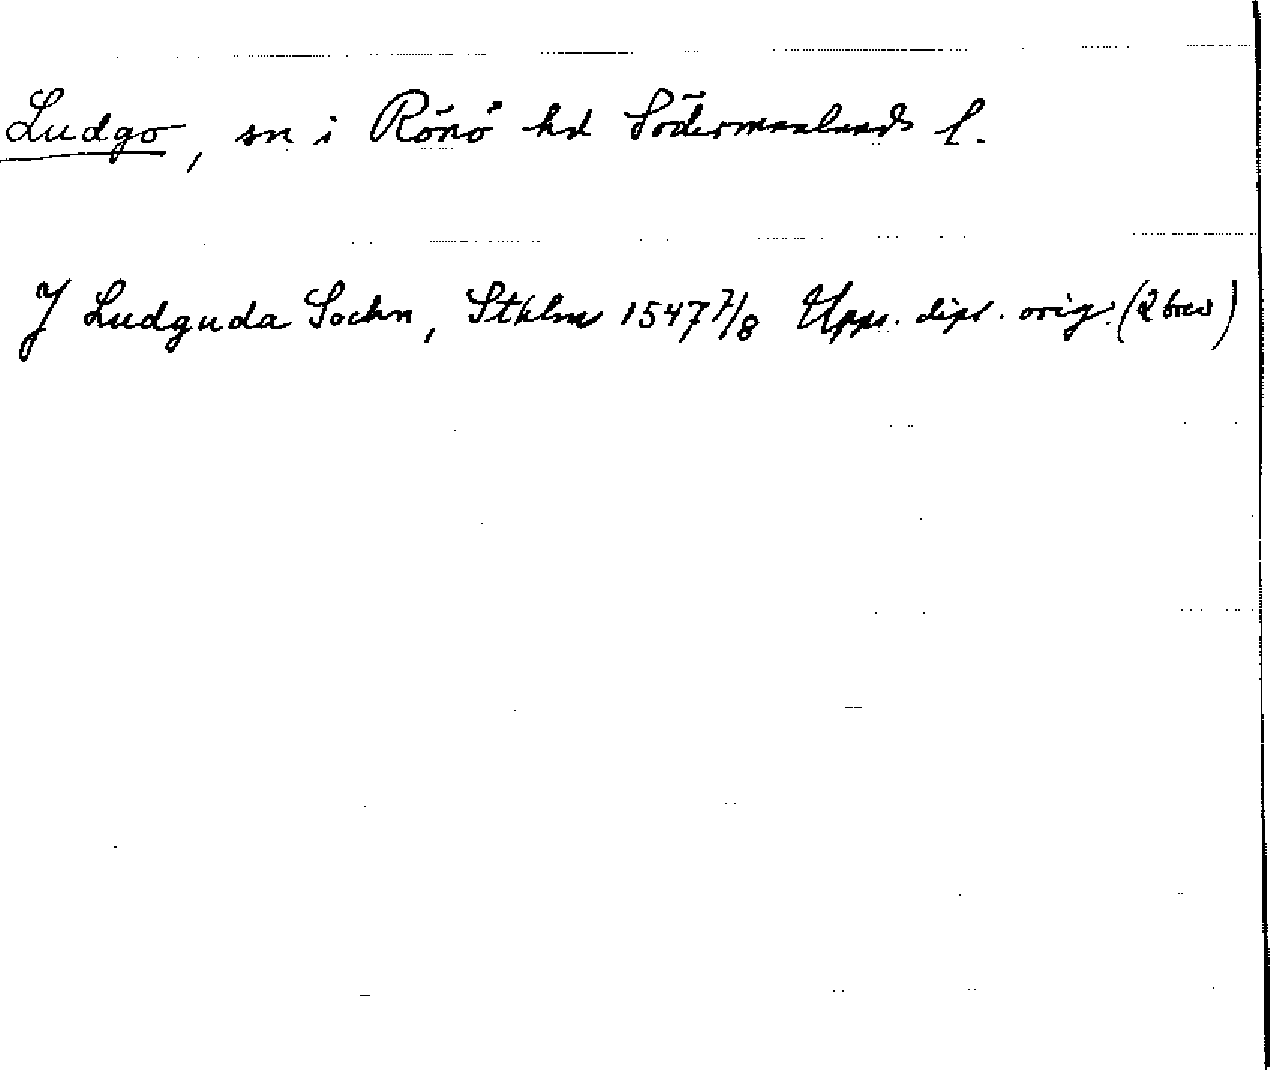 Ludgo, sn i Rönö hd Södermanlands l.
J Ludguda Sockn, Sthlm 1547 7/8 Upps. dipl. orig. (2 brev)